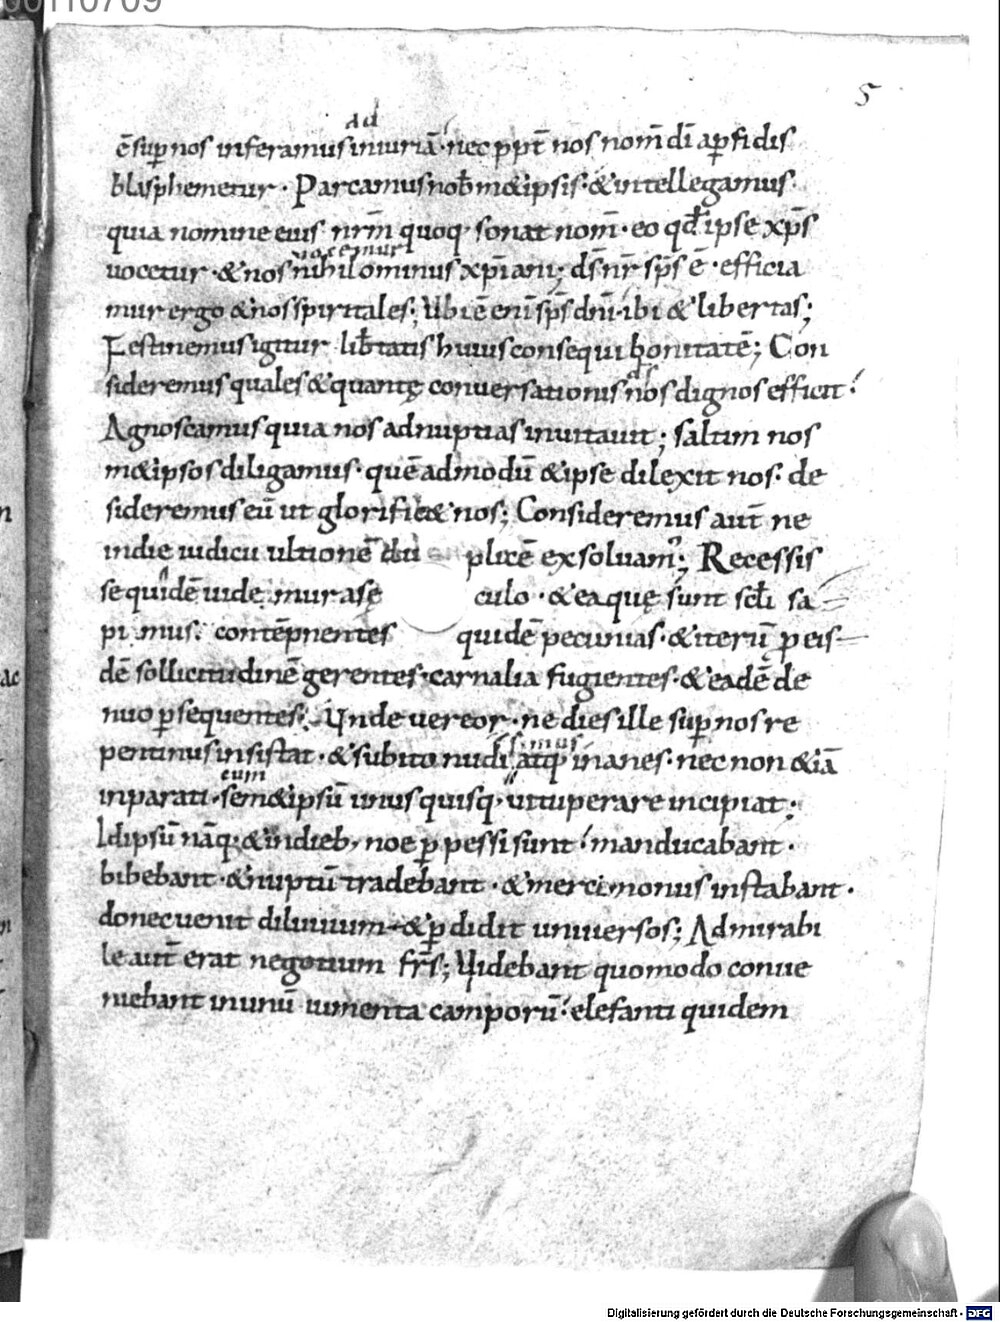 00110709
5
ad
ē sup nos inferamus iniuriā · nec ppt̄ nos nom̄ dī ap̱ fidis
blasphemetur · Parcamus nob̄ m&ipsis · & intellegamus ·
quia nomine eius nr̄m quoq; sonat nom̄ · eo qd̄ ipse xp̄s
uocemur
uocetur · & nos nihilominus xp̄iani; ds̄ nr̄ sp̄s ē · efficia
mur ergo & nos spiritales; Ubi ē enī sp̄s dn̄i · ibi & libertas;
Festinemus igitur lib̄tatis huius consequi bonitatē; Con
ds̄
sideremus quales & quantę conuersationis nos dignos efficit ·
Agnoscamus quia nos ad nuptias inuitauit; saltim nos
m&ipsos diligamus · quē admodū & ipse dilexit nos · de
sideremus eū ut glorific& nos; Consideremus aut̄ ne
in die iudicii ultionē du plicē exsoluam; Recessis
se quidē uidemur a sę culo · & ea quę sunt scl̄i sa
pimus · contēpnentes quidē pecunias · & iterū p̱ eis
dē sollicitudinē gerentes · carnalia fugientes · & eadē de
nuo p̱sequentes; Unde uereor · ne dies ille sup nos re
simus
pentinus insistat · & subito nudi atq; inanes · nec non & iā
eum
inparati · sem&ipsū unus quisq; uituperare incipiat;
Id ipsū nāq; & in dieb; noe p̱pessi sunt · manducabant ·
bibebant · & nuptū tradebant · & mercimoniis instabant ·
donec uenit diluuium · & p̱didit uniuersos; Admirabi
le aut̄ erat negotium frs̄; Uidebant quomodo conue
niebant in unū iumenta camporū · elefanti quidem
Digitalisierung gefördert durch die Deutsche Forschungsgemeinschaft - DFG